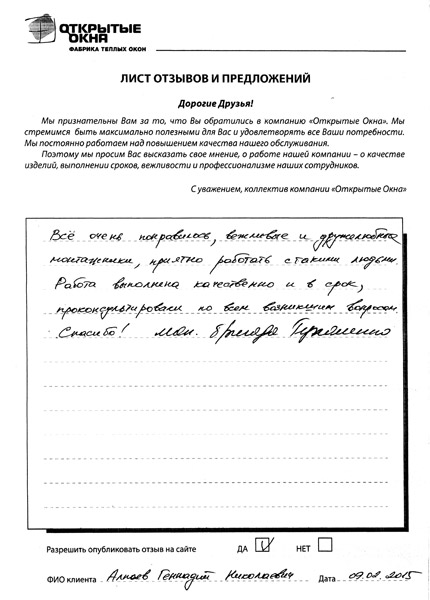 ОТКРЫТЫЕ
ОКНА
ФАБРИКА ТЕПЛЫХ ОКОН
ЛИСТ ОТЗЫВОВ И ПРЕДЛОЖЕНИЙ
Дорогие Друзья!
Мы признательны Вам за то, что Вы обратились в компанию «Открытые Окна». Мы
стремимся быть максимально полезными для Вас и удовлетворять все Ваши потребности.
Мы постоянно работаем над повышением качества нашего обслуживания.
Поэтому мы просим Вас высказать свое мнение, о работе нашей компании – о качестве
изделий, выполнении сроков, вежливости и профессионализме наших сотрудников.
С уважением, коллектив компании «Открытые Окна»
Всё очень понравилось, вежливые и дружелюбные
монтажники, приятно работать с такими людьми.
Работа выполнена качественно и в срок,
проконсультировали по всем возникшим вопросам.
Спасибо! Мон. бригада
Разрешить опубликовать отзыв на сайте ДА НЕТ
ФИО клиента Геннадий Николаевич Дата 09.02.2015